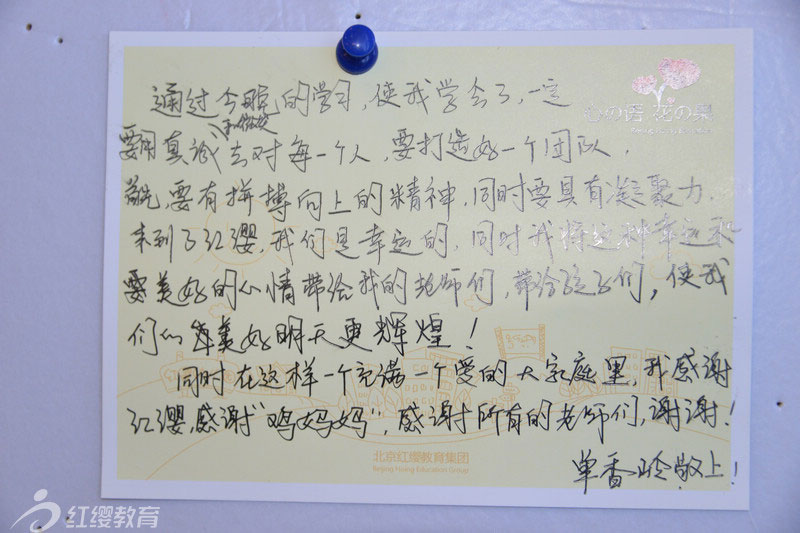 通过今晚的学习,使我学会了,一定
要用真诚和微笑去对每一个人,要打造好一个团队,
首先,要有拼搏向上的精神,同时要具有凝聚力,
来到了红缨,我们是幸运的,同时我将这种幸运和
要美好的心情带给我的老师们,带给孩子们,使我
们的美好明天更辉煌!
同时在这样一个充满一个爱的大家庭里,我感谢
红缨,感谢“鸡妈妈”,感谢所有的老师们,谢谢!
单香玲敬上!
心の语 花の果
北京红缨教育集团
Beijing Hoing Education Group
红缨教育